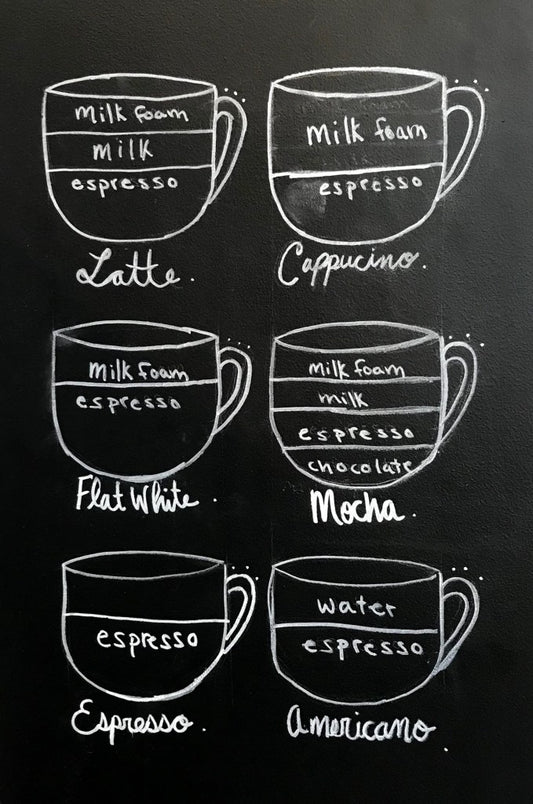 milk foam
milk
espresso
Latte.
milk foam
espresso
Cappucino.
milk foam
espresso
Flat White.
milk foam
milk
espresso
chocolate
Mocha.
espresso
Espresso.
water
espresso
Americano.